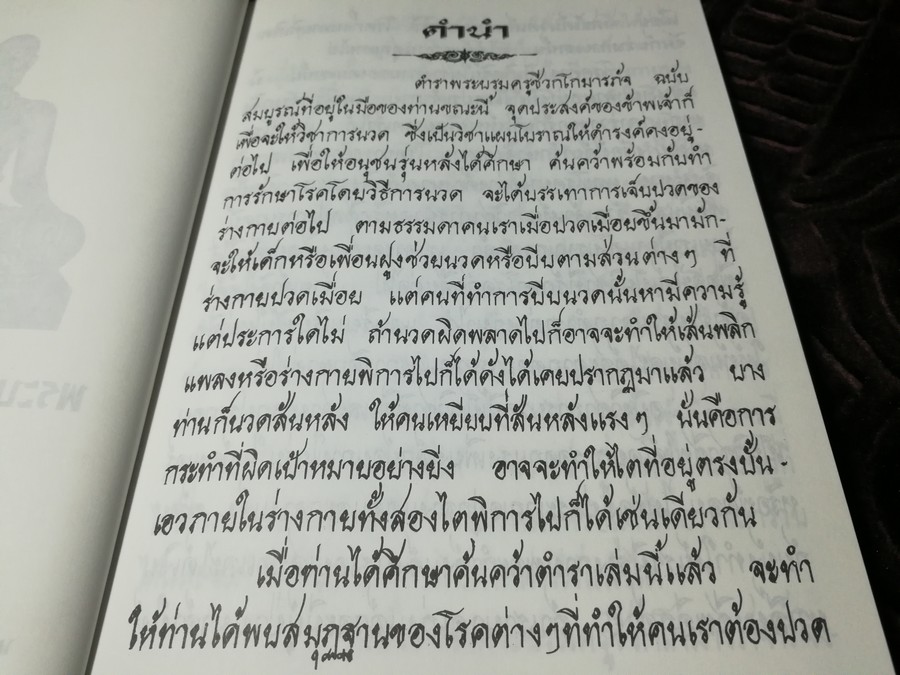 คำนำ
ตำราพระบรมครูชีวกโกมารภัจ ฉบับ
สมบูรณ์ที่อยู่ในมือของท่านขณะนี้ จุดประสงค์ของข้าพเจ้าก็
เพื่อจะให้วิชาการนวด ซึ่งเป็นวิชาแผนโบราณให้ดำรงค์คงอยู่-
ต่อไป เพื่อให้อนุชนรุ่นหลังได้ศึกษา ค้นคว้าพร้อมกับทำ
การรักษาโรคโดยวิธีการนวด จะได้บรรเทาการเจ็บปวดของ
ร่างกายต่อไป ตามธรรมดาคนเราเมื่อปวดเมื่อยขึ้นมามัก-
จะให้เด็กหรือเพื่อนฝูงช่วยนวดหรือบีบตามส่วนต่างๆ ที่
ร่างกายปวดเมื่อย แต่คนที่ทำการบีบนวดนั้นหามีความรู้
แต่ประการใดไม่ ถ้านวดผิดพลาดไปก็อาจจะทำให้เส้นพลิก
แพลงหรือร่างกายพิการไปก็ได้ดังได้เคยปรากฎมาแล้ว บาง
ท่านก็นวดสันหลัง ให้คนเหยียบที่สันหลังแรงๆ นั่นคือการ
กระทำที่ผิดเป้าหมายอย่างยิ่ง อาจจะทำให้ไตที่อยู่ตรงบั้น-
เอวภายในร่างกายทั้งสองไตพิการไปก็ได้เช่นเดียวกัน
เมื่อท่านได้ศึกษาค้นคว้าตำราเล่มนี้แล้ว จะทำ
ให้ท่านได้พบสมุฏฐานของโรคต่างๆที่ทำให้คนเราต้องปวด